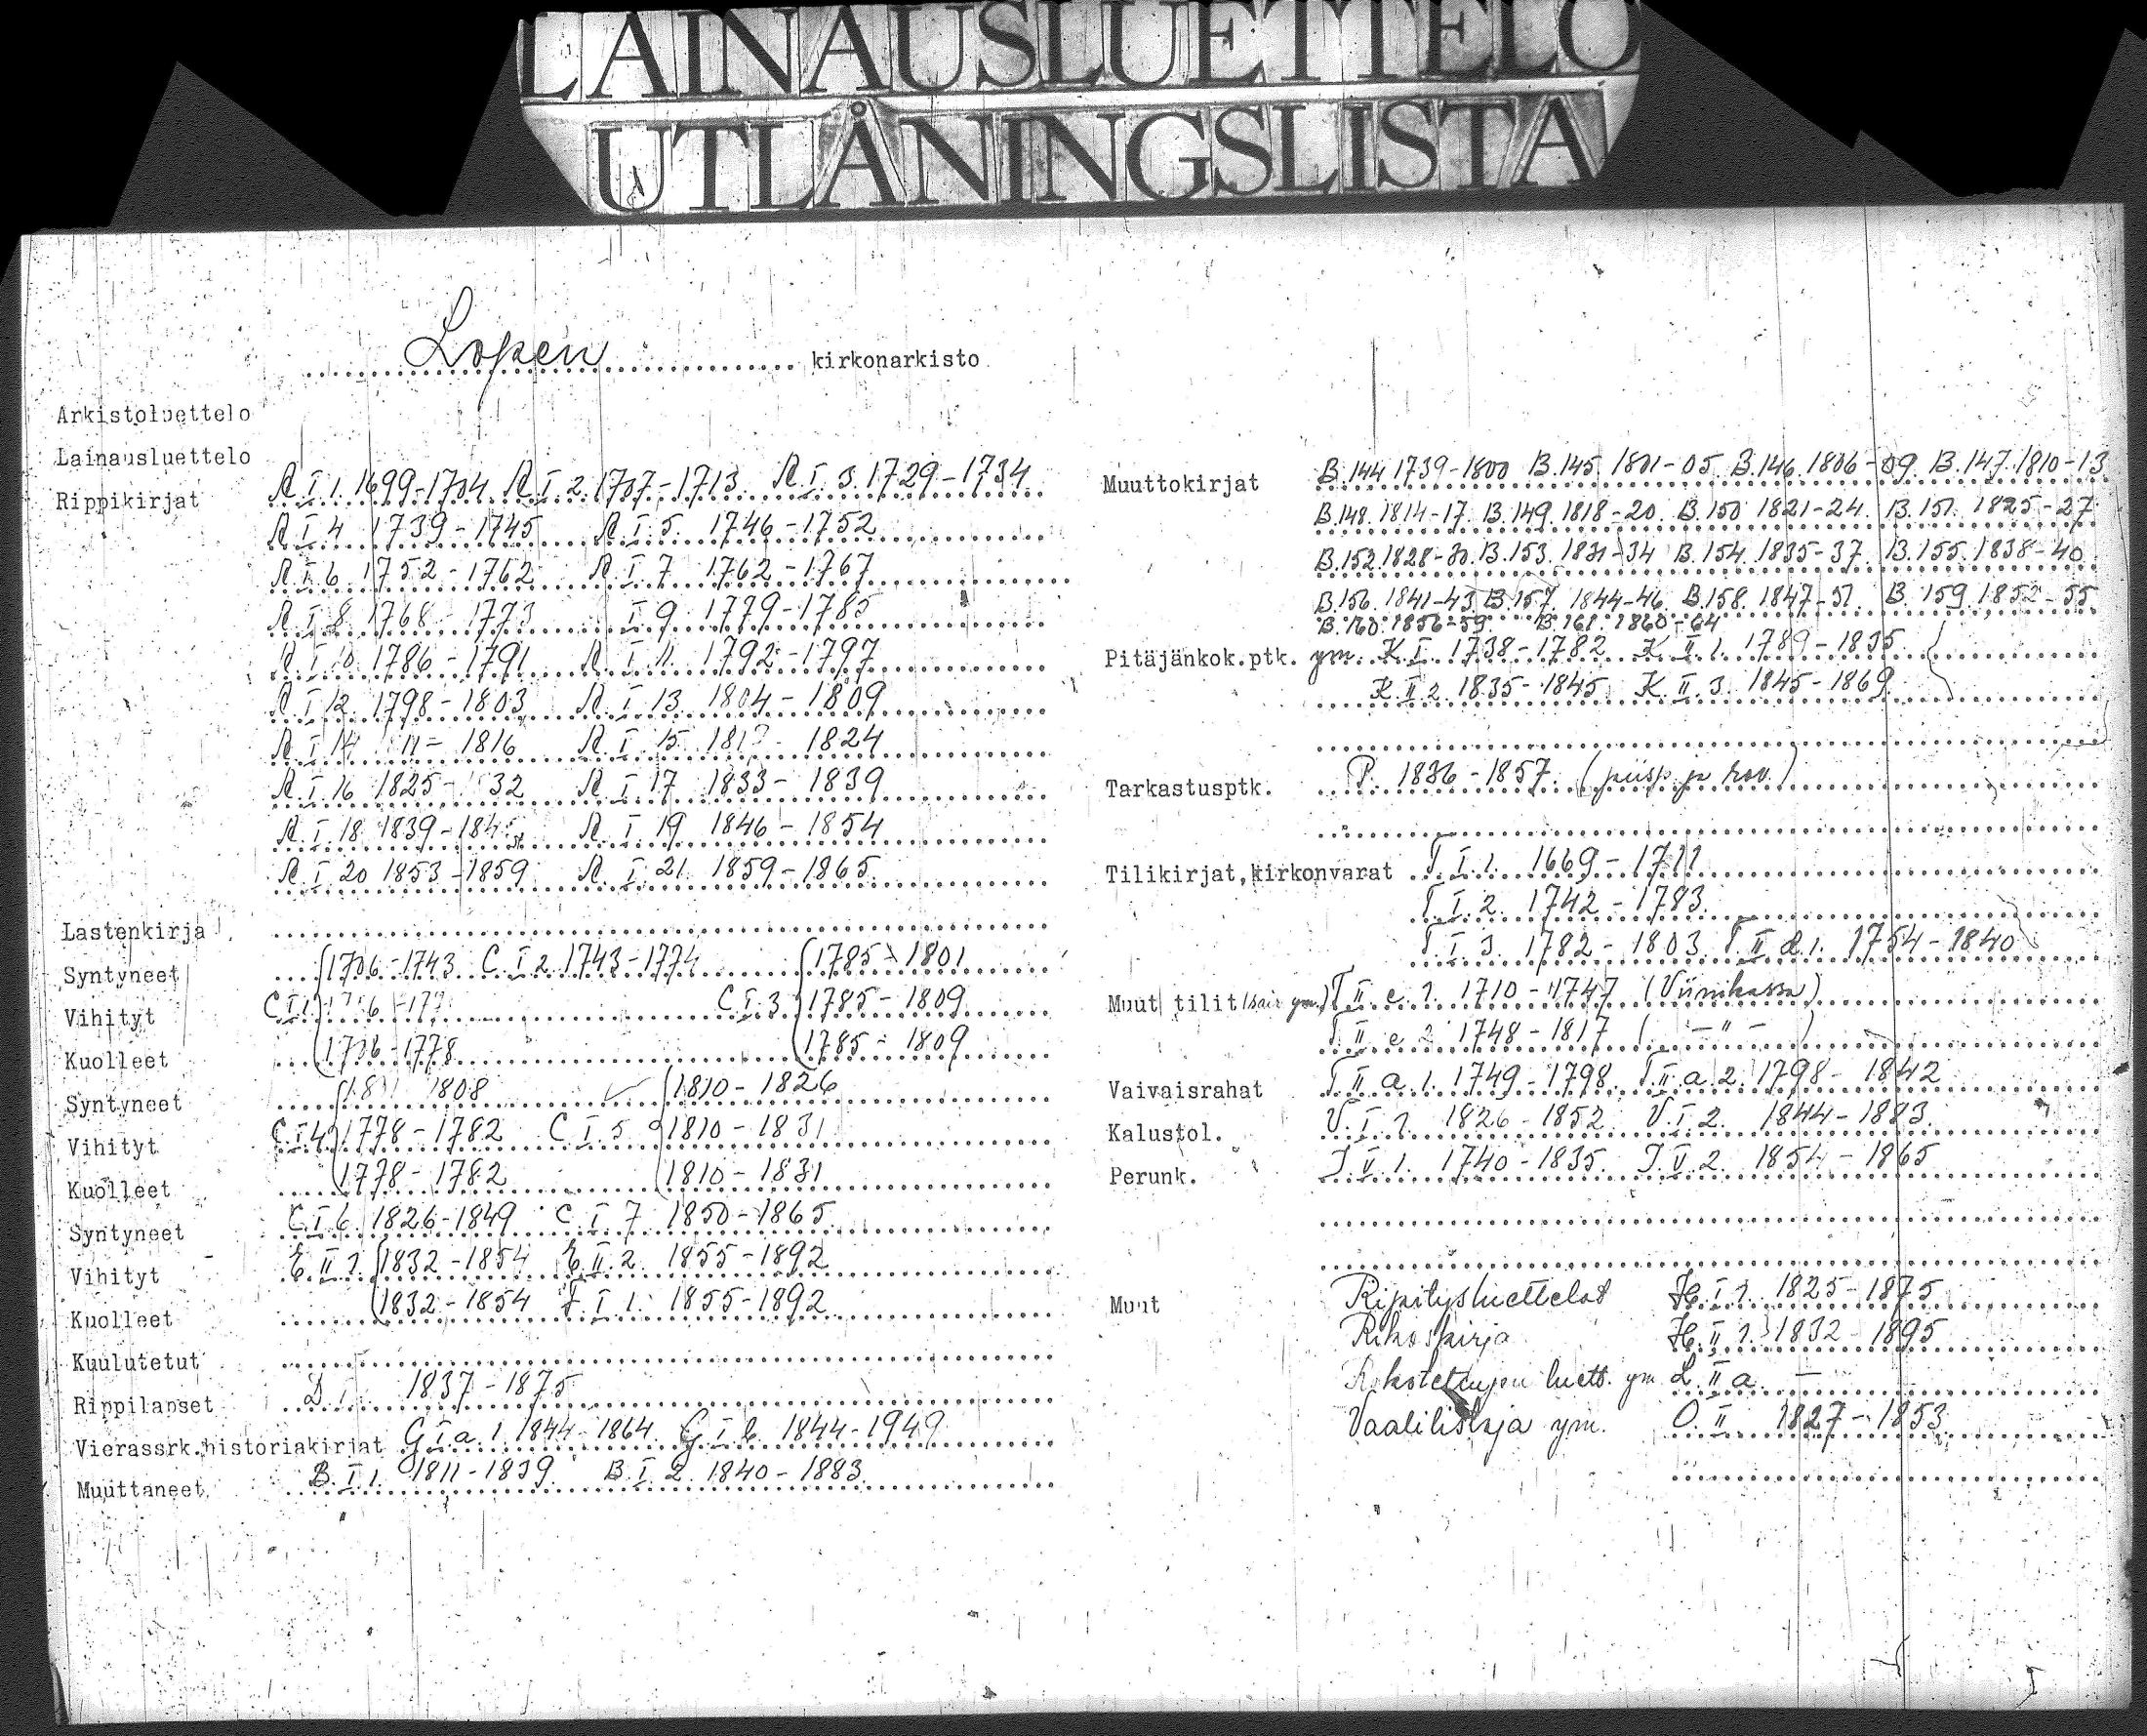 LAINAUSLUETTELO
UTLÅNINGSLISTA
Lopen kirkonarkisto
Arkistoluettelo
Lainausluettelo
Rippikirjat A I 1. 1699-1704 A I 2. 1707-1713 A I 3. 1729-1734
A I 4 1739-1745 A I 5. 1746-1752
A I 6 1752-1762 A I 7 1762-1767
A I 8 1768-1773 I 9 1779-1785
A I 10 1786-1791 A I 11. 1792-1797
A I 12. 1798-1803 A I 13 1804-1809
A I 14 1816 A I 15 1824
A I 16 1825-32 A I 17 1833-1839
A I 18 1839- A I 19 1846-1854
A I 20 1853-1859 A I 21. 1859-1865
Lastenkirja
Syntyneet 1706-1743 C I 2 1743-1774 1785-1801
Vihityt C I 1 C I 3 1785-1809
Kuolleet 1706-1778 1785-1809
Syntyneet 1808 1810-1826
Vihityt C I 4 1778-1782 C I 5 1810-1831
Kuolleet 1778-1782 1810-1831
Syntyneet C I 6 1826-1849 C I 7 1850-1865
Vihityt E II 1 1832-1854 E II 2. 1855-1892
Kuolleet 1832-1854 F I 1. 1855-1892
Kuulutetut
Rippilapset D 1837-1875
Vierassrk.historiakirjat G I a 1 1844-1864 G I b 1844-1949
Muuttaneet B I 1. 1811-1839 B I 2 1840-1883
Muuttokirjat B.144 1739-1800 B.145 1801-05 B.146 1806-09 B.147 1810-13
B.148. 1814-17 B.149. 1818-20. B.150 1821-24. B.151. 1825-27
B.152 1828-30. B.153. 1831-34 B.154. 1835-37. B.155. 1838-40
B.156. 1841-43 B.157. 1844-46. B.158. 1847-51. B.159. 1852-55
B.160. 1856-59 B.161. 1860-64
Pitäjänkok.ptk. ym. K I. 1738-1782 K II 1. 1789-1835
K II 2. 1835-1845 K II 3. 1845-1869
Tarkastusptk. P. 1836-1857. (piisp ja rov.)
Tilikirjat,kirkonvarat T I 1. 1669-1711
T I 2. 1742-1783
T I 3. 1782-1803 T II d 1. 1754-1840
Muut tilit ym.) T II e 1. 1710-1747 (Viinikassa)
T II e 2 1748-1817 ( -"- )
Vaivaisrahat T II a 1. 1749-1798. T II a 2. 1798-1842
Kalustol. V I 1. 1826-1852 V I 2. 1844-1883
Perunk. J V 1. 1740-1835. J V 2. 1854-1865
Muut Ripitysluettelot H I 1. 1825-1875
Rikoskirja H II 1. 1832-1895
Rokotettujen luett. ym L II a -
Vaalilistoja ym. O. II. 1827-1853